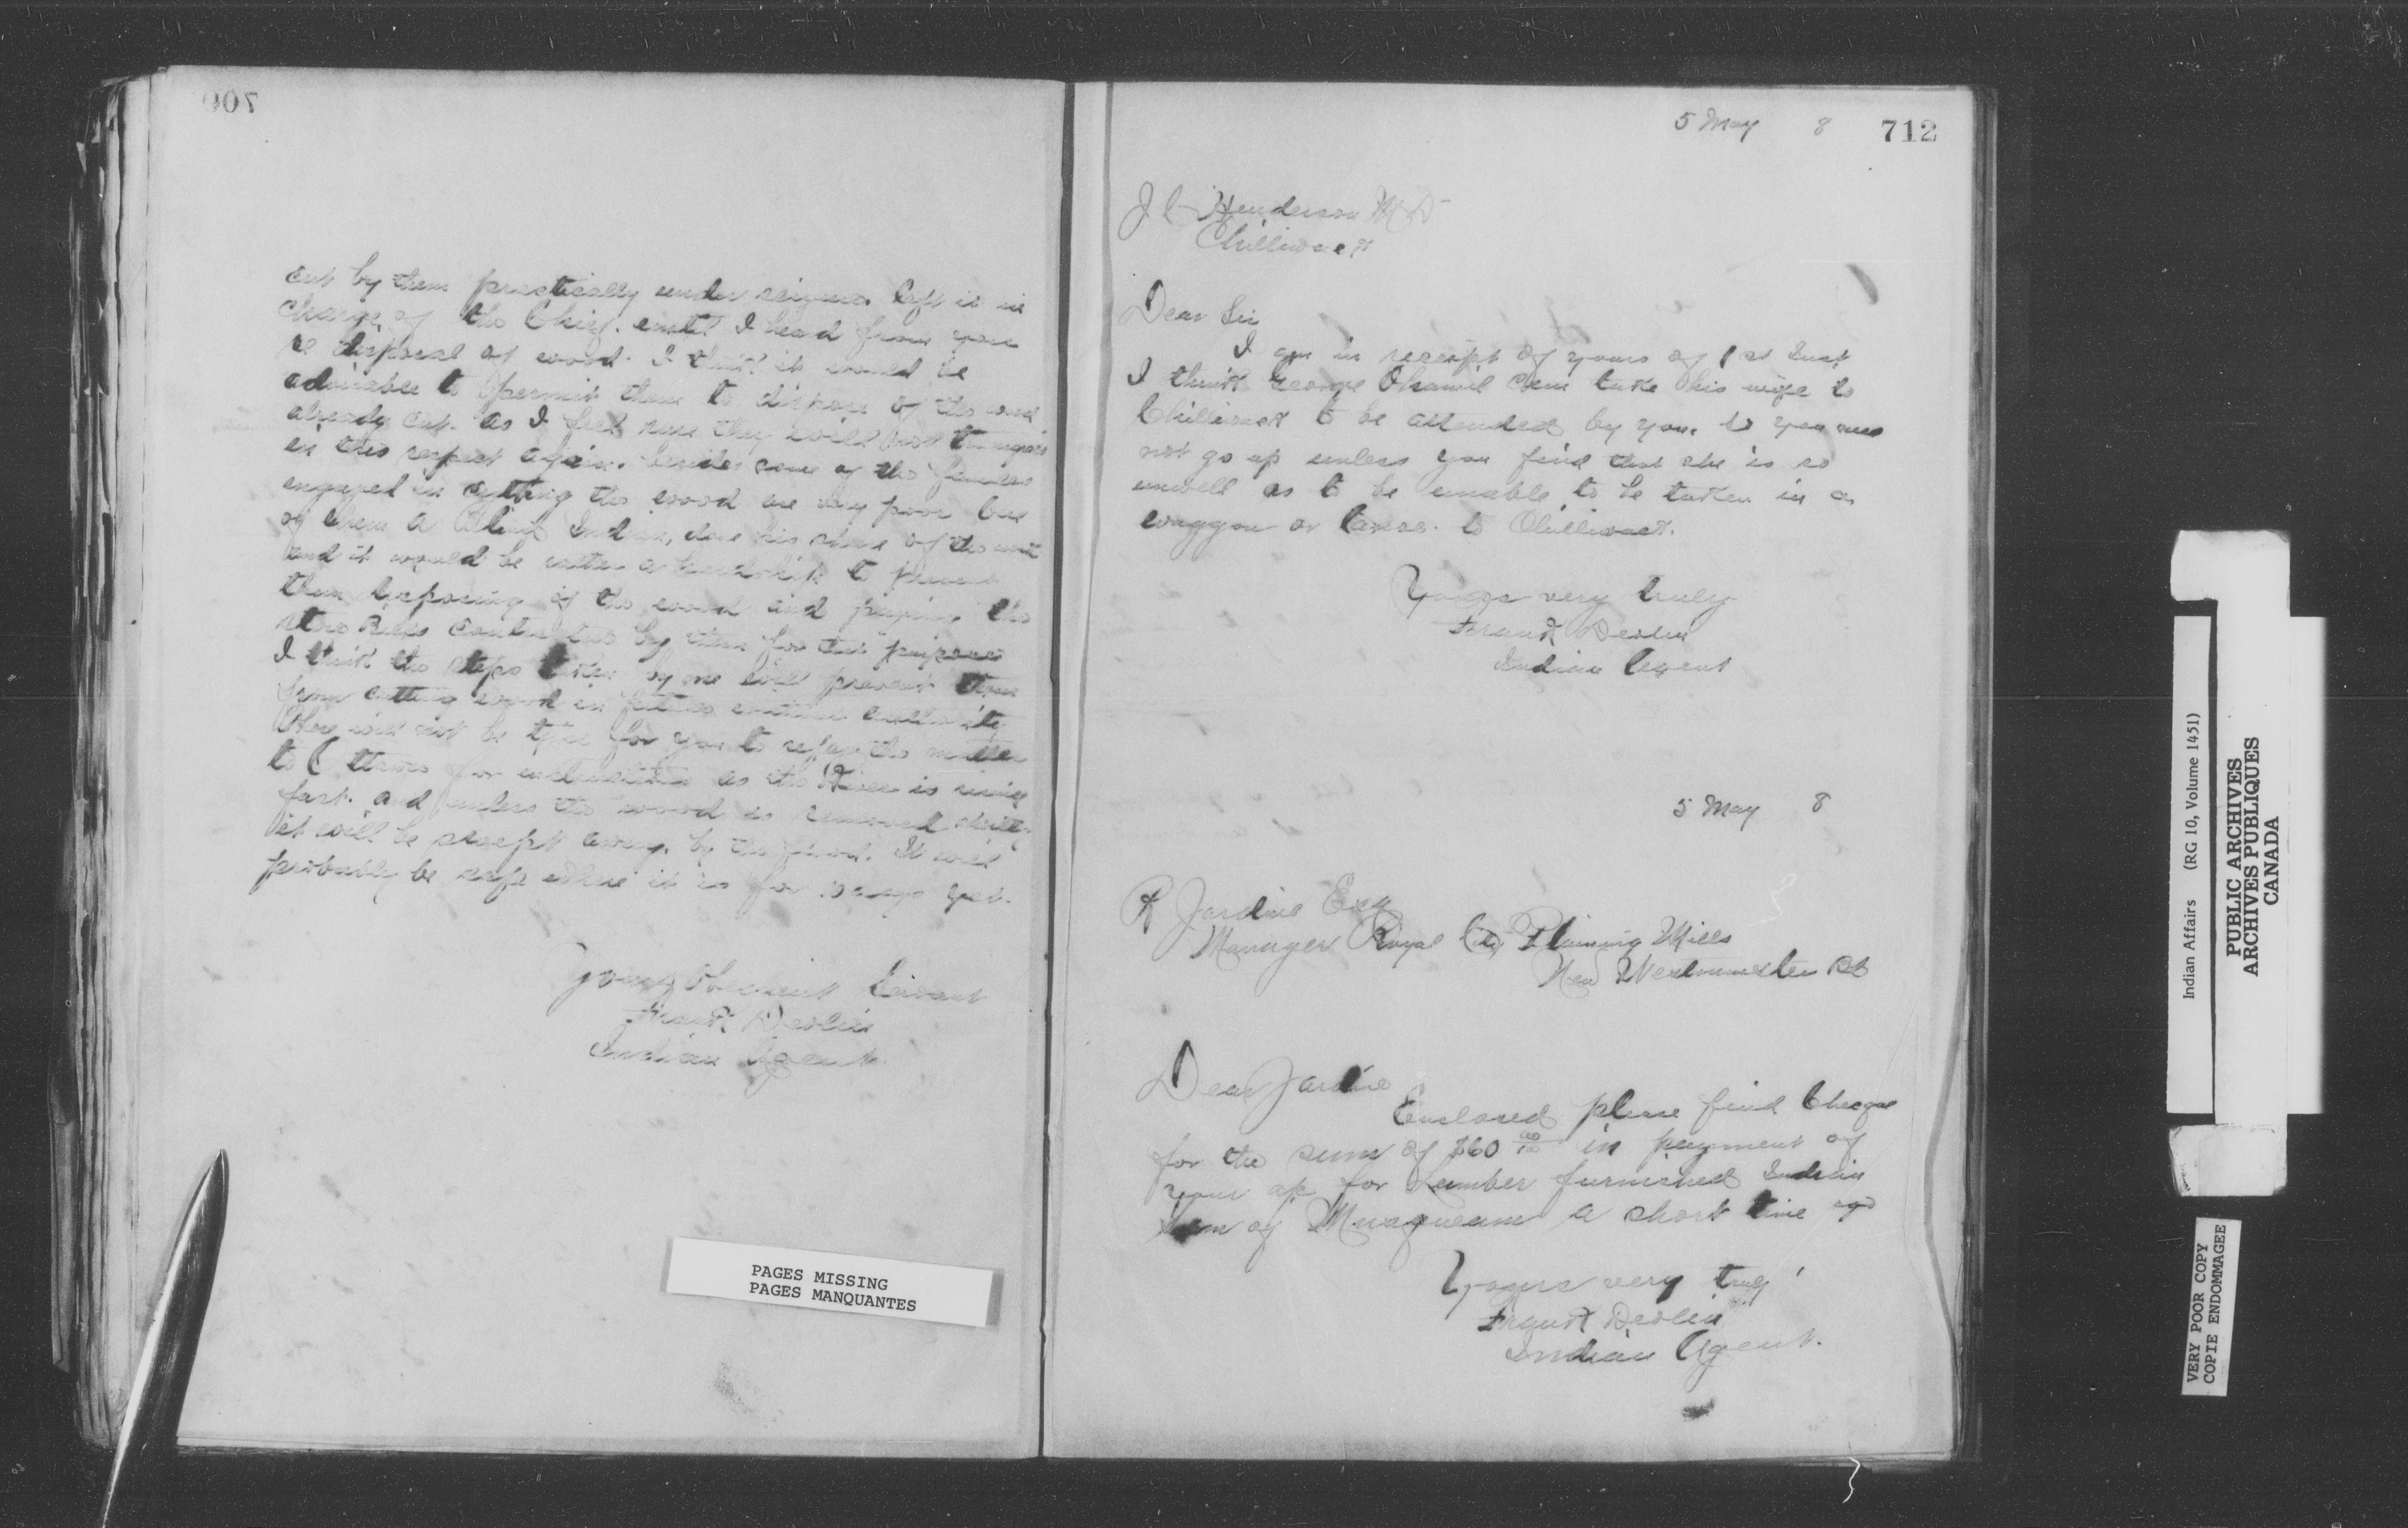 709
cut by them practically under seizure. left it in
charge of the Chief. until I head from you
re disposal of wood. I think it would be
advisable to permit them to dispose of the wood
already cut. as I feel sure they will not
in this respect again. besides some of the
engaged in cutting the wood are very poor one
of them a Blind Indian, done his share of the
and it would be rather a hardship to prevent
them disposing of the wood and paying the
store Bills contracted by them for this purpose
I think the steps taken by me will prevent them
from cutting wood in future without authority
there will not be time for you to refer the matter
to Ottawa for instructions as the River is rising
fast. and unless the wood is removed shortly
it will be swept away. by the flood. It will
probably be safe where it is for 10 days yet.
Your Obedient Servant
Frank Devlin
Indian Agent.
PAGES MISSING
PAGES MANQUANTES
5 May 8 712
J C Henderson M D
Chilliwack
Dear Sir
I am in receipt of yours of 1st Inst
I think George Ohamil can take his wife to
Chilliwack to be attended by you. so you need
not go up unless you find that she is so
unwell as to be unable to be taken in a
waggon or Canoe. to Chilliwack.
Yours very truly
Frank Devlin
Indian Agent
5 May 8
R Jardine Esq
Manager Royal City Plaining Mills
New Westminster BC
Dear Jardine
Enclosed please find Cheque
for the sum of $60 00/100 in payment of
your a/c for Lumber furnished Indian
of Musqueam a short time ago
Yours very truly
Frank Devlin
Indian Agent.
Indian Affairs (RG 10, Volume 1451)
PUBLIC ARCHIVES
ARCHIVES PUBLIQUES
CANADA
VERY POOR COPY
COPIE ENDOMMAGEE